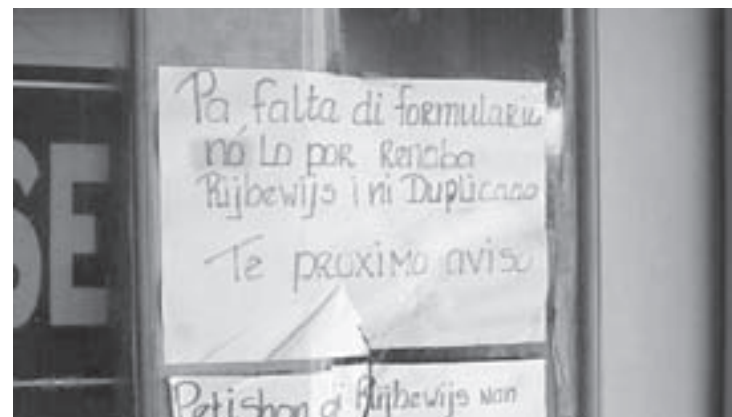 Pa falta di formulario
nó Lo por Renoba
Rijbewijs i ni Duplicado
Te proximo aviso
Petishon di Rijbewijs nan
SE